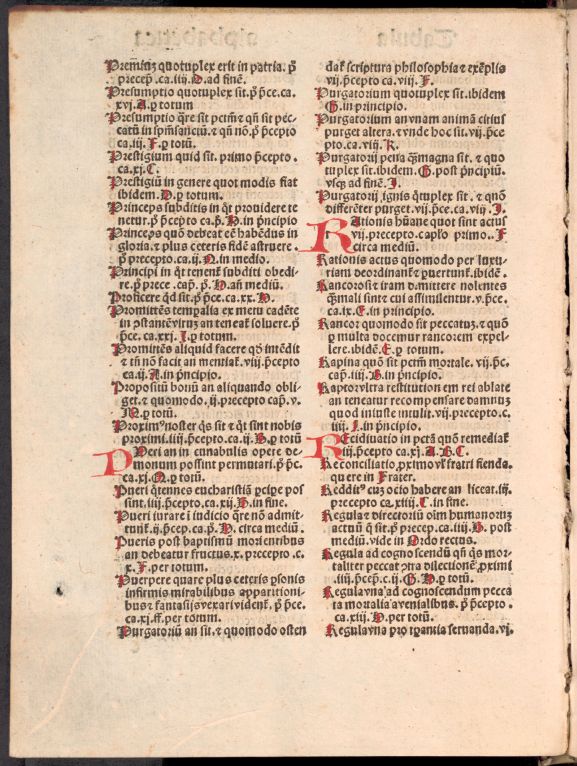 Premiũ quotuplex erit in patria. p̃
precep. ca. iiij. D. ad finẽ.
Presumptio quotuplex sit. p̃ p̃ce. ca.
xvj. A. ꝑ totum
Presumptio q̃re sit petm̃ ⁊ qñ sit pec-
catũ in sp̃msanctũ. ⁊ qñ nõ. p̃ cepto
ca. iij. F. ꝑ totũ.
Prestigium quid sit. primo p̃cepto.
ca. xj. C.
Prestigiũ in genere quot modis fiat
ibidem. D. ꝑ totum.
Princeps subditis in q̃t prouidere te
netur. p̃ p̃cepto ca. p̃. N. in p̃ncipio
Princeps quõ debeat eẽ habẽdus in
gloria. ⁊ plus ceteris fidẽ astruere.
p̃ precepto. ca. ij. N. in medio.
Principi in q̃t tenent̃ subditi obedi-
re. p̃. prece. cap̃. p̃. N. añ mediũ.
Proficere q̃d sit. p̃. p̃ce. ca. xx. N.
Promittẽs temp̃alia ex metu cadẽte
in ↄstantẽ virũ an teneat̃ soluere. p̃.
p̃ce. ca. xxj. I. ꝑ totum.
Promittẽs aliquid facere qð intẽdit
⁊ tñ nõ facit an mentiat̃. viij. p̃cepto
ca. ij. A. in p̃ncipio.
Propositũ bonũ an aliquando obli-
get. ⁊ quomodo. ij. precepto cap̃. v.
N. ꝑ totũ.
Proximꝰ noster q̃s sit ⁊ q̃t sint nobis
proximi. iiij. p̃cepto. ca. ij. B. ꝑ totũ
Pueri an in cunabulis opere de-
monum possint permutari. p̃ p̃c.
ca. xj. Q. ꝑ totũ.
Pueri q̃tennes eucharistiã ꝑciꝑe pos
sint. iiij. p̃cepto. ca. xij. H. in fine.
Pueri iurare ĩ iudicio q̃re nõ admit-
tunt̃. ij. p̃cep. ca. p̃. D. circa mediũ.
Pueris post baptismũ morientibus
an debeatur fructus. x. precepto. c.
x. F. per totum.
Puerpere quare plus ceteris ꝑsonis
infirmis mirabilibus apparitioni-
bus ⁊ fantasijs vexarividẽnt̃. p̃ p̃ce.
ca. xj. ff. per totum.
Purgatoriũ an sit. ⁊ quomodo osten
dat̃ scriptura philosophia ⁊ exẽplis
vij. p̃cepto ca. viij. F.
Purgatorium quotuplex sit. ibidem
G. in principio.
Purgatorium an vnam animã citius
purget altera. ⁊ vnde hoc sit. vij. p̃ce
pto. ca. viij. K.
Purgatorij pena q̃ magna sit. ⁊ quo
tuplex sit. ibidem. G. post p̃ncipiũ.
vsq̃ ad finẽ. I.
Purgatorij ignis q̃tuplex sit. ⁊ q̃ñõ
differẽter purget. vij. p̃ce. ca. viij. I.
Rationis hũane quot sint actus
vij. precepto. cap̃lo primo. F
circa mediũ.
Rationis actus quomodo per luxu-
riam deordinant̃ ⁊ ꝑuertunt̃. ibidẽ.
Rancorosi ⁊ iram dimittere nolentes
q̃ mali sint ⁊ cui assimilentur. v. p̃ce.
ca. ix. E. in principio.
Rancor quomodo sit peccatuz. ⁊ quõ
ꝑ multa documenta rancorem expel-
lere. ibidẽ. E. ꝑ totum.
Rapina quõ sit petm̃ mortale. vij. p̃c.
cap̃. iiij. B. in principio.
Raptor vltra restitutionem rei ablate
an teneatur recompensare damnuz
quod iniuste intulit. vij. precepto. c.
iiij. I. in p̃ncipio.
Recidiuatio in pctã quõ remediat̃
iij. p̃cepto. ca. xj. A. B. C.
Reconciliatio ꝓximo vł fratri fienda.
quere in Frater.
Redditꝰ cuz ocio habere an liceat. iij.
precepto ca. xiiij. C. in fine.
Regula ⁊ directoriũ oĩm humanorũz
actuũ q̃ sit. p̃ precep. ca. iiij. B. post
mediũ. vide in Ordo rectus.
Regula ad cognoscendũ q̃ñ q̃s mor-
taliter peccat ↄtra dilectionẽ ꝓximi
. iiij. p̃cep̃. c. ij. G. H. ꝑ totũ.
Regula vna ad cognoscendum pecca
ta mortalia a venialibus. p̃ p̃cepto.
ca. xiij. D. per totũ.
Regula vna pro tẽꝑantia seruanda. vj.